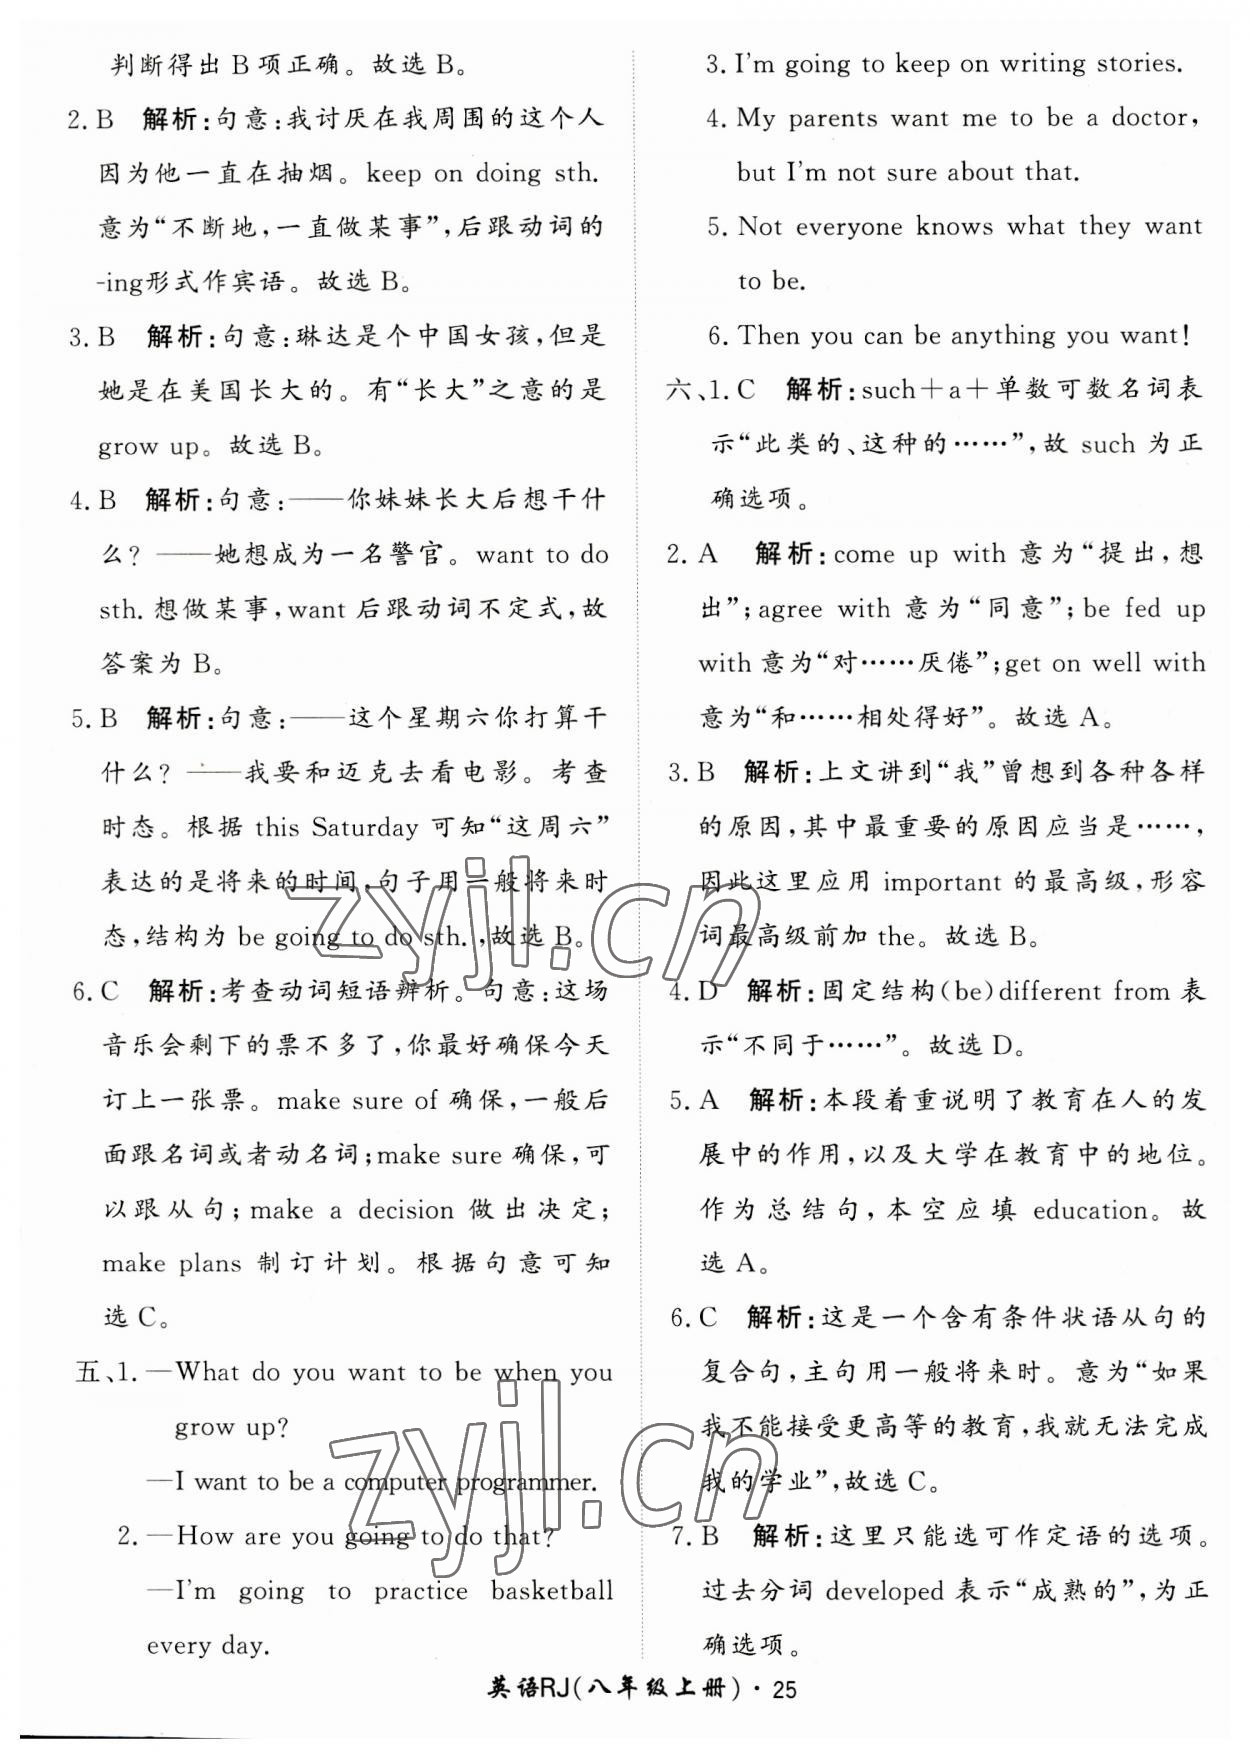 判断得出 B 项正确。故选 B。
2. B　解析:句意:我讨厌在我周围的这个人
因为他一直在抽烟。keep on doing sth.
意为“不断地,一直做某事”,后跟动词的
-ing形式作宾语。故选 B。
3. B　解析:句意:琳达是个中国女孩,但是
她是在美国长大的。有“长大”之意的是
grow up。故选 B。
4. B　解析:句意:——你妹妹长大后想干什
么? ——她想成为一名警官。want to do
sth. 想做某事,want 后跟动词不定式,故
答案为 B。
5. B　解析:句意:——这个星期六你打算干
什么? ——我要和迈克去看电影。考查
时态。根据 this Saturday 可知“这周六”
表达的是将来的时间,句子用一般将来时
态,结构为 be going to do sth. ,故选 B。
6. C　解析:考查动词短语辨析。句意:这场
音乐会剩下的票不多了,你最好确保今天
订上一张票。make sure of 确保,一般后
面跟名词或者动名词;make sure 确保,可
以跟从句;make a decision 做出决定;
make plans 制订计划。根据句意可知
选 C。
五、1. —What do you want to be when you
grow up?
—I want to be a computer programmer.
2. —How are you going to do that?
—I'm going to practice basketball
every day.
3. I'm going to keep on writing stories.
4. My parents want me to be a doctor,
but I'm not sure about that.
5. Not everyone knows what they want
to be.
6. Then you can be anything you want!
六、1. C　解析:such+a+单数可数名词表
示“此类的、这种的……”,故 such 为正
确选项。
2. A　解析:come up with 意为“提出,想
出”;agree with 意为“同意”;be fed up
with 意为“对……厌倦”;get on well with
意为“和……相处得好”。故选 A。
3. B　解析:上文讲到“我”曾想到各种各样
的原因,其中最重要的原因应当是……,
因此这里应用 important 的最高级,形容
词最高级前加 the。故选 B。
4. D　解析:固定结构(be)different from 表
示“不同于……”。故选 D。
5. A　解析:本段着重说明了教育在人的发
展中的作用,以及大学在教育中的地位。
作为总结句,本空应填 education。故
选 A。
6. C　解析:这是一个含有条件状语从句的
复合句,主句用一般将来时。意为“如果
我不能接受更高等的教育,我就无法完成
我的学业”,故选 C。
7. B　解析:这里只能选可作定语的选项。
过去分词 developed 表示“成熟的”,为正
确选项。
英语RJ(八年级上册)·25
zyjl.cn
zyjl.cn